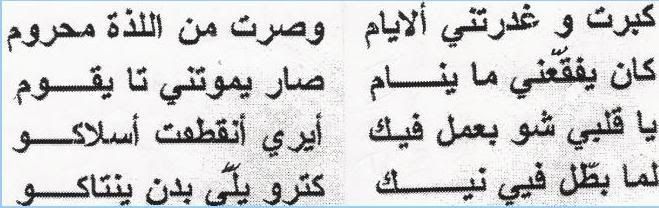 كبرت و غدرتني ألايام وصرت من اللذة محروم
كان يفقّعني ما ينـــام صار يموتني تا يقـــوم
يا قلبي شو بعمل فيك أيري أنقطعت أسلاكـــو
لما بطّل فيي نيـــــك كترو يلّي بدن ينتاكـــو